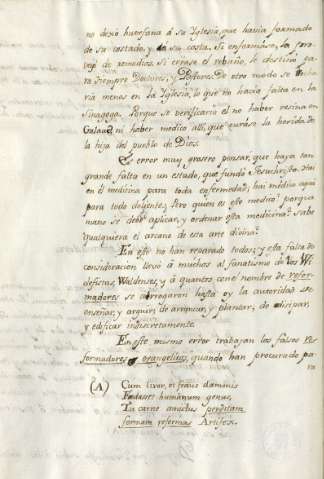 no dexó huerfana á su Iglesia, que havia formado
de su costado, y á su costa. Si enfermáse, la pro-
vejó de remedios. Si errase el rebaño, le destinó pa-
ra siempre Doctores, y Pastores. De otro modo se halla-
ria menos en la Iglesia, lo que no havia falta en la
Sinagoga. Porque se verificaria el no haber resina en
Galaad, ni haber medico alli, que curáse la herida de
la hija del pueblo de Dios.
Es error muy grosero pensar, que haya tan
grande falta en un estado, que fundó Jesuchristo. Hai
en él medicina para toda enfermedad; hai médico aqui
para todo doliente; Pero quien es este medico? porque
mano se debe aplicar, y ordenar esta medicina? sabe
qualquiera el arcano de esta arte divina?
En esto no han reparado todos; y esta falta de
consideracion llevó á muchos al fanatismo de los Wi-
clefistas, Waldenses, y á quantos con el nombre de refor-
madores se arrogaron hasta oy la autoridad de
enseñar, y arguir, de arrancar, y plantar, de disipar,
y edificar indiscretamente.
En este mismo error trabajan los falsos re-
formadores evangelicos, quando han procurado pa-
ra
(A) Cum livor, et fraus dæmonis
Fœdasset humanum genus,
Tu carne amictus perditam
formam reformas Artifex.